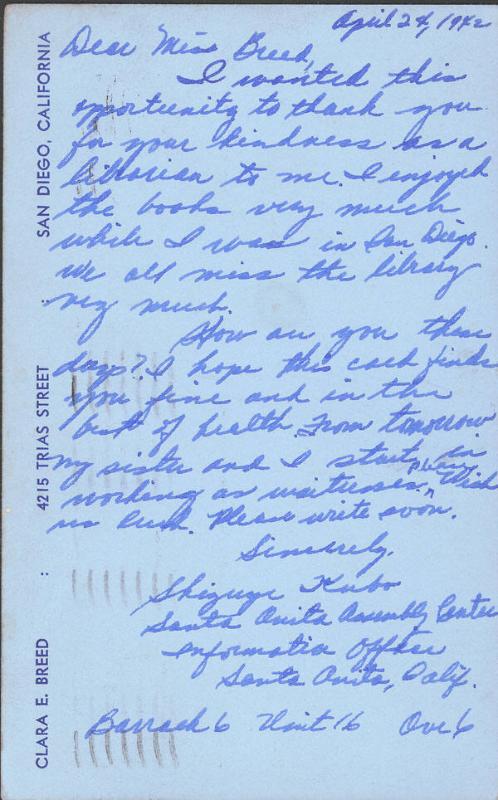 April 24, 1942
Dear Miss Breed,
I wanted this
oportunity to thank you
for your kindness as a
librarian to me. I enjoyed
the books very much
while I was in San Diego.
We all miss the library
very much.
How are you these
days? I hope this card finds
you fine and in the
best of health. From tomorrow
my sister and I start in
working as waitresses. Wish
us luck. Please write soon.
Sincerely,
Shizuye Kubo
Santa Anita Assembly Center
Information Office
Santa Anita, Calif.
Barrack 6 Unit 16 Ave 6
CLARA E. BREED : 4215 TRIAS STREET : SAN DIEGO, CALIFORNIA